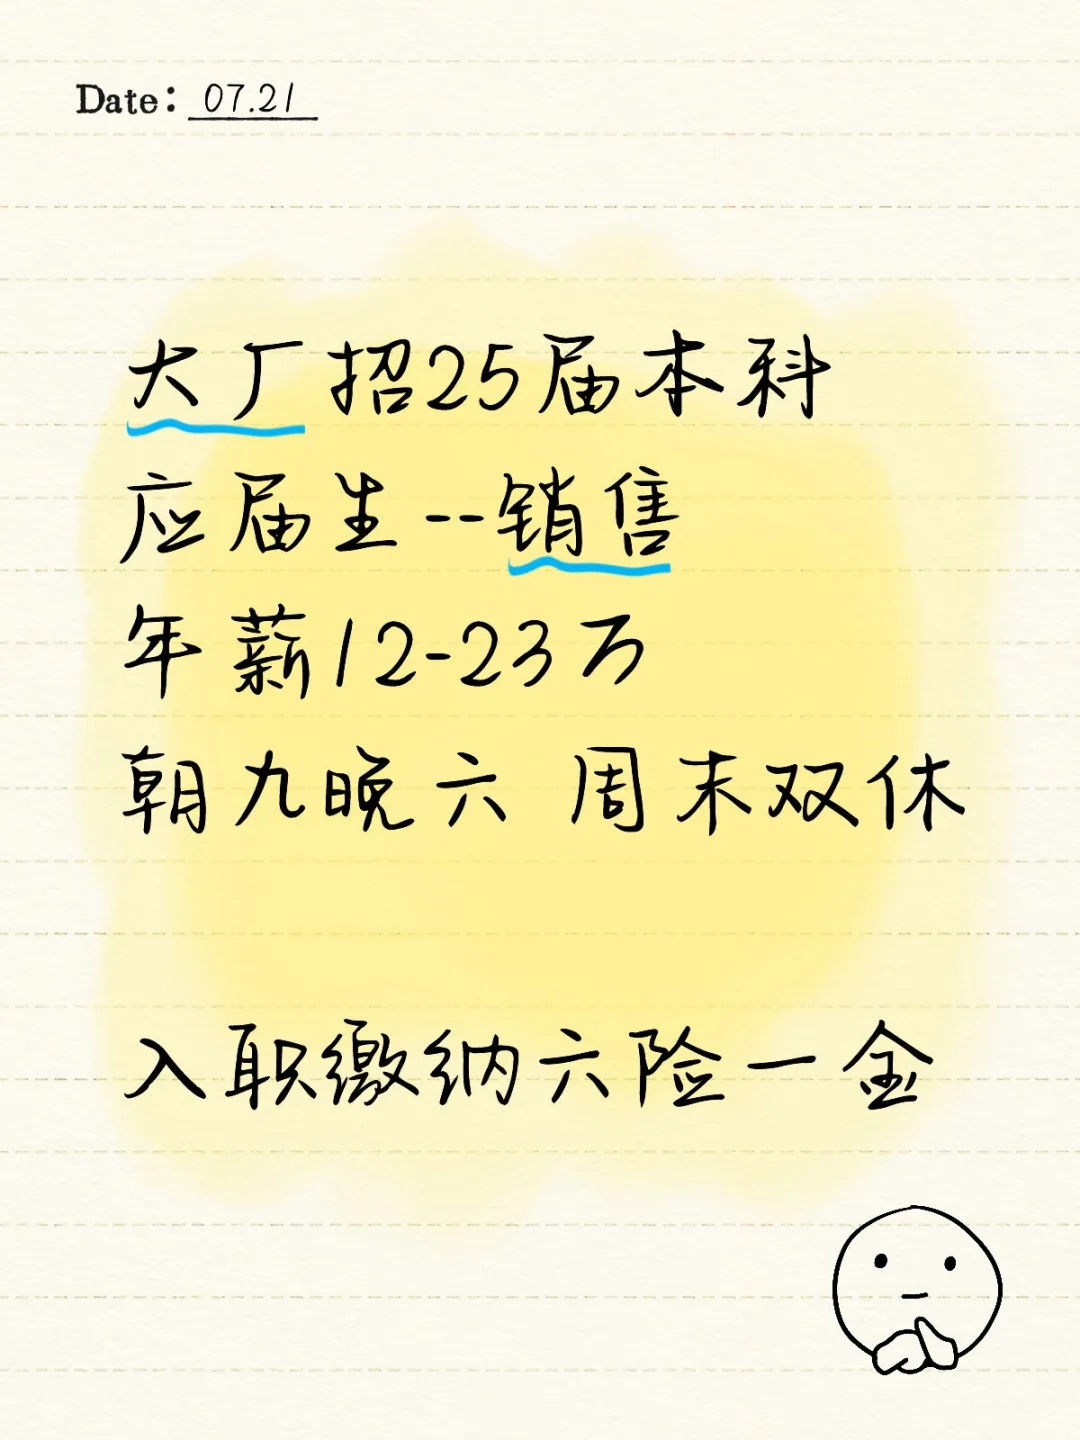 Date: 07.21
大厂招25届本科
应届生--销售
年薪12-23万
朝九晚六 周末双休
入职缴纳六险一金